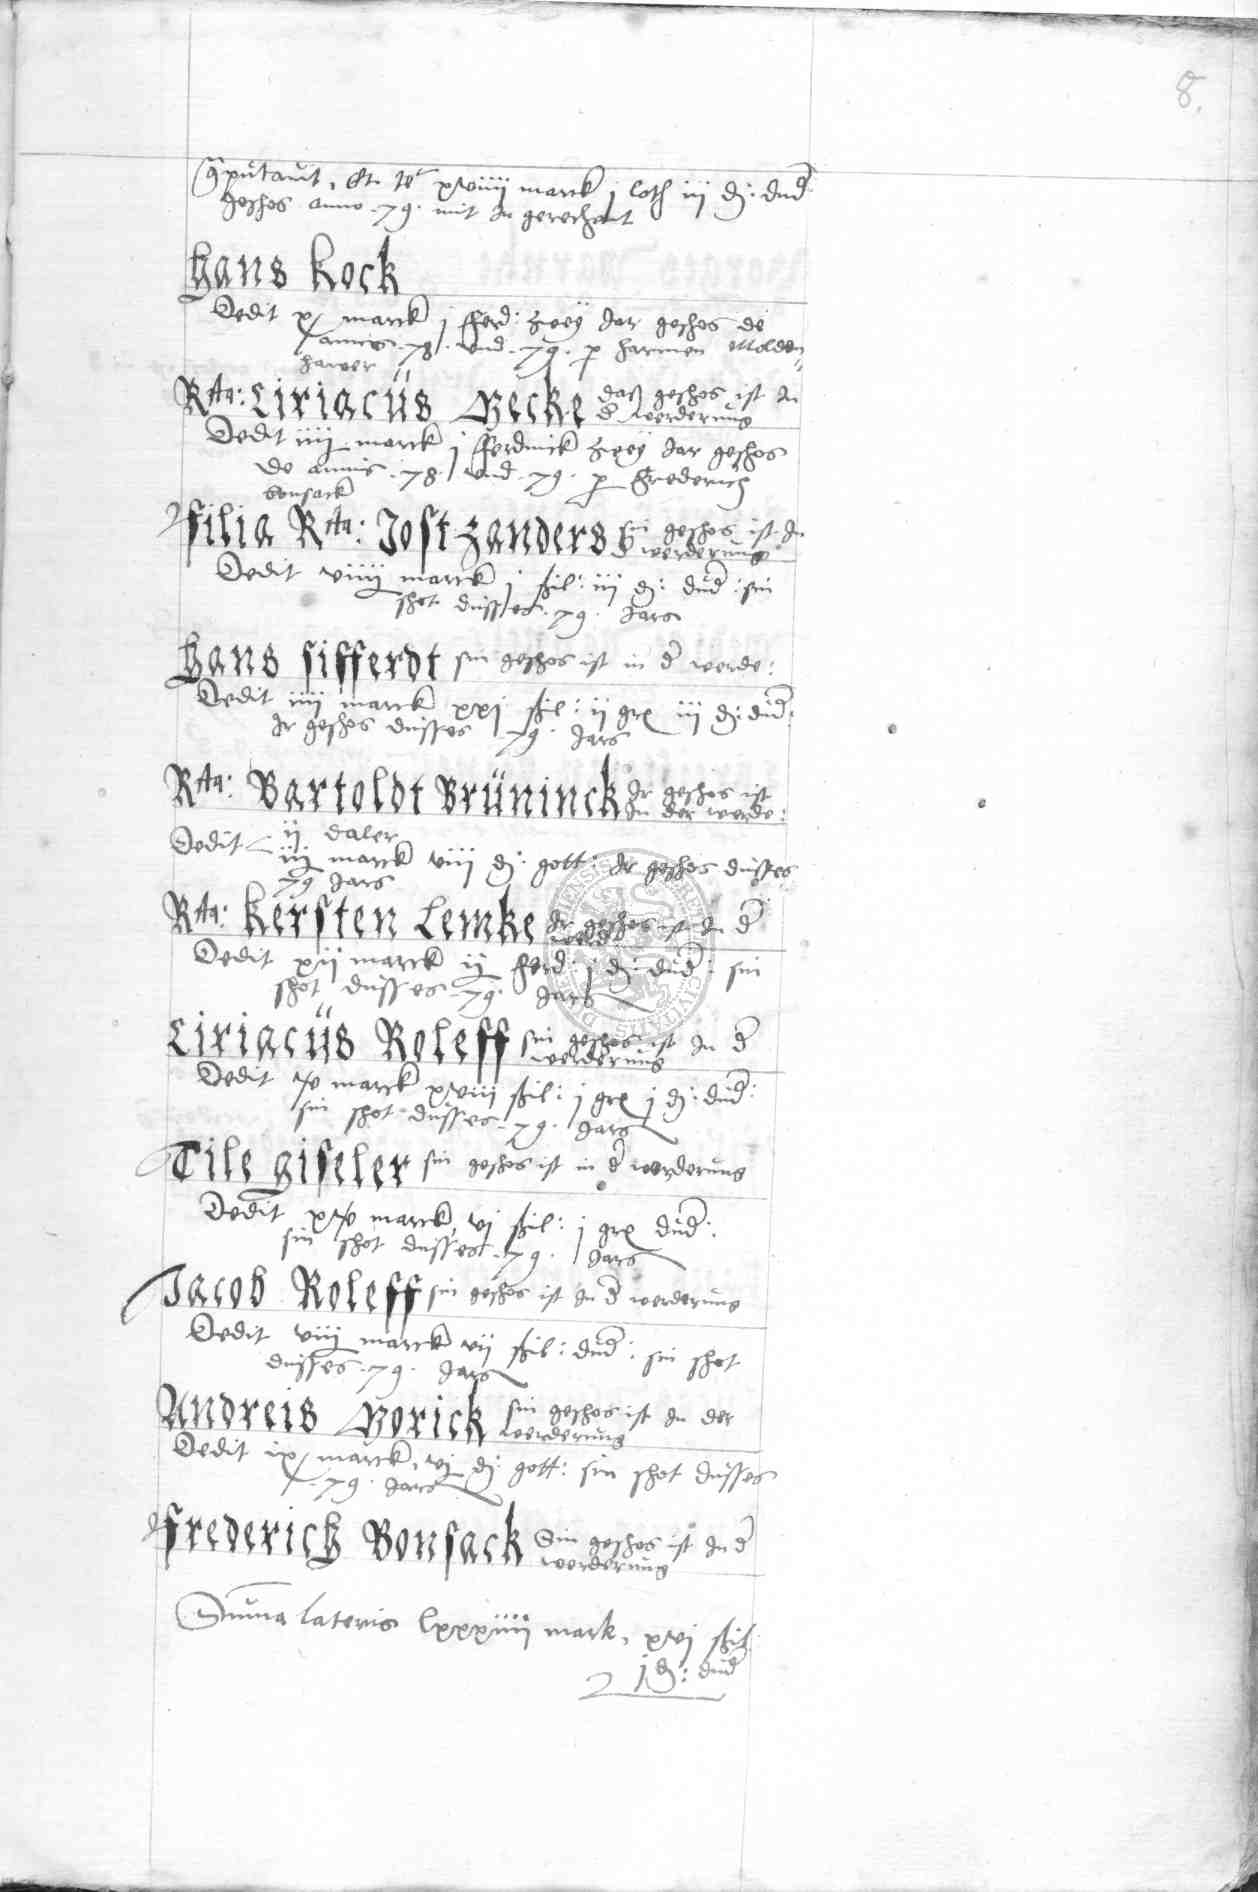 8.
Computavit, et te xviiii marck j loth iij ₰: dud:
geschos anno .79. mit In gerechent
Hans Kock
Dedit x marck j fferd: zwey Jar geschos de
annis .78. und .79. p harmen Molden„
hawer
Rta: Ciriacüs Becke daß geschos ist In
d werderung
Dedit iiij marck j fferdinck zwey Jar geschos
de annis .78. und .79. p Frederich
bonsack
Filia Rta: Jost Zanders sin geschos ist In
d werderung
Dedit viiij marck j ßil: iij ₰: dud: sin
schot dusses .79. Jars
Hans Sifferdt sin geschos ist in d werde:
Dedit iiij marck xxj ßil: ij grx iij ₰: dud:
Ir geschos dusses .79. Jars
Rta: Bartoldt Brüninck Ir geschos ist
In der werde:
Dedit ij daler
iij marck viii ₰: gott: Ir geschos dusses
79 Jars
Rta: Kersten Lemke Ir geschos ist In d
werd
Dedit xij marck ij fferd: j ₰: dud: sin
schot dusses .79. Jars
Ciriacüs Roleff sin geschos ist In d
werderung
Dedit v marck xviii ßil: j grx j ₰: dud:
sin schot dusses .79. Jars
Tile Giseler sin geschos ist in d werderung
Dedit xv marck, vj ßil: j grx dud:
sin schot dusses .79. Jars
Jacob Roleff sin geschos ist In d werderung
Dedit viij marck vij ßil: dud: sin schot
dusses .79. Jars
Andreis Borick sin geschos ist In der
werderung
Dedit ix marck, vj ₰: gott: sin schot dusses
.79. Jars
Frederich Bonsack Sin geschos ist In d
werderung
Summa lateris lxxxiiii mark, xvj ßil:
j ₰: dud